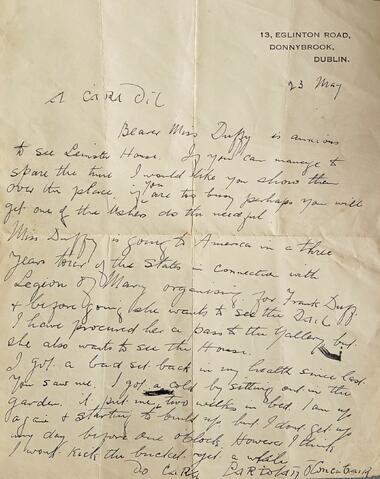 13, EGLINTON ROAD,
DONNYBROOK,
DUBLIN.
23 May
A Cara Dil
Bearer Miss Duffy is anxious
to see Leinster House. If you can manage to
spare the time I would like you show them
over the place. If you are too busy perhaps you will
get one of the Ushers do the needful
Miss Duffy is going to America in a three
years tour of the States in connection with
Legion of Mary organising for Frank Duff
& before going she wants to see the Dail.
I have procured her a pass to the Gallery but
she also wants to see the House.
I got a bad set back in my health since last
you saw me. I got a cold by sitting out in the
garden. it put me two weeks in bed. I am up
again & starting to build up but I dont get up
any day before one oclock. However I think
I wont Kick the bucket yet a while
Do Cara